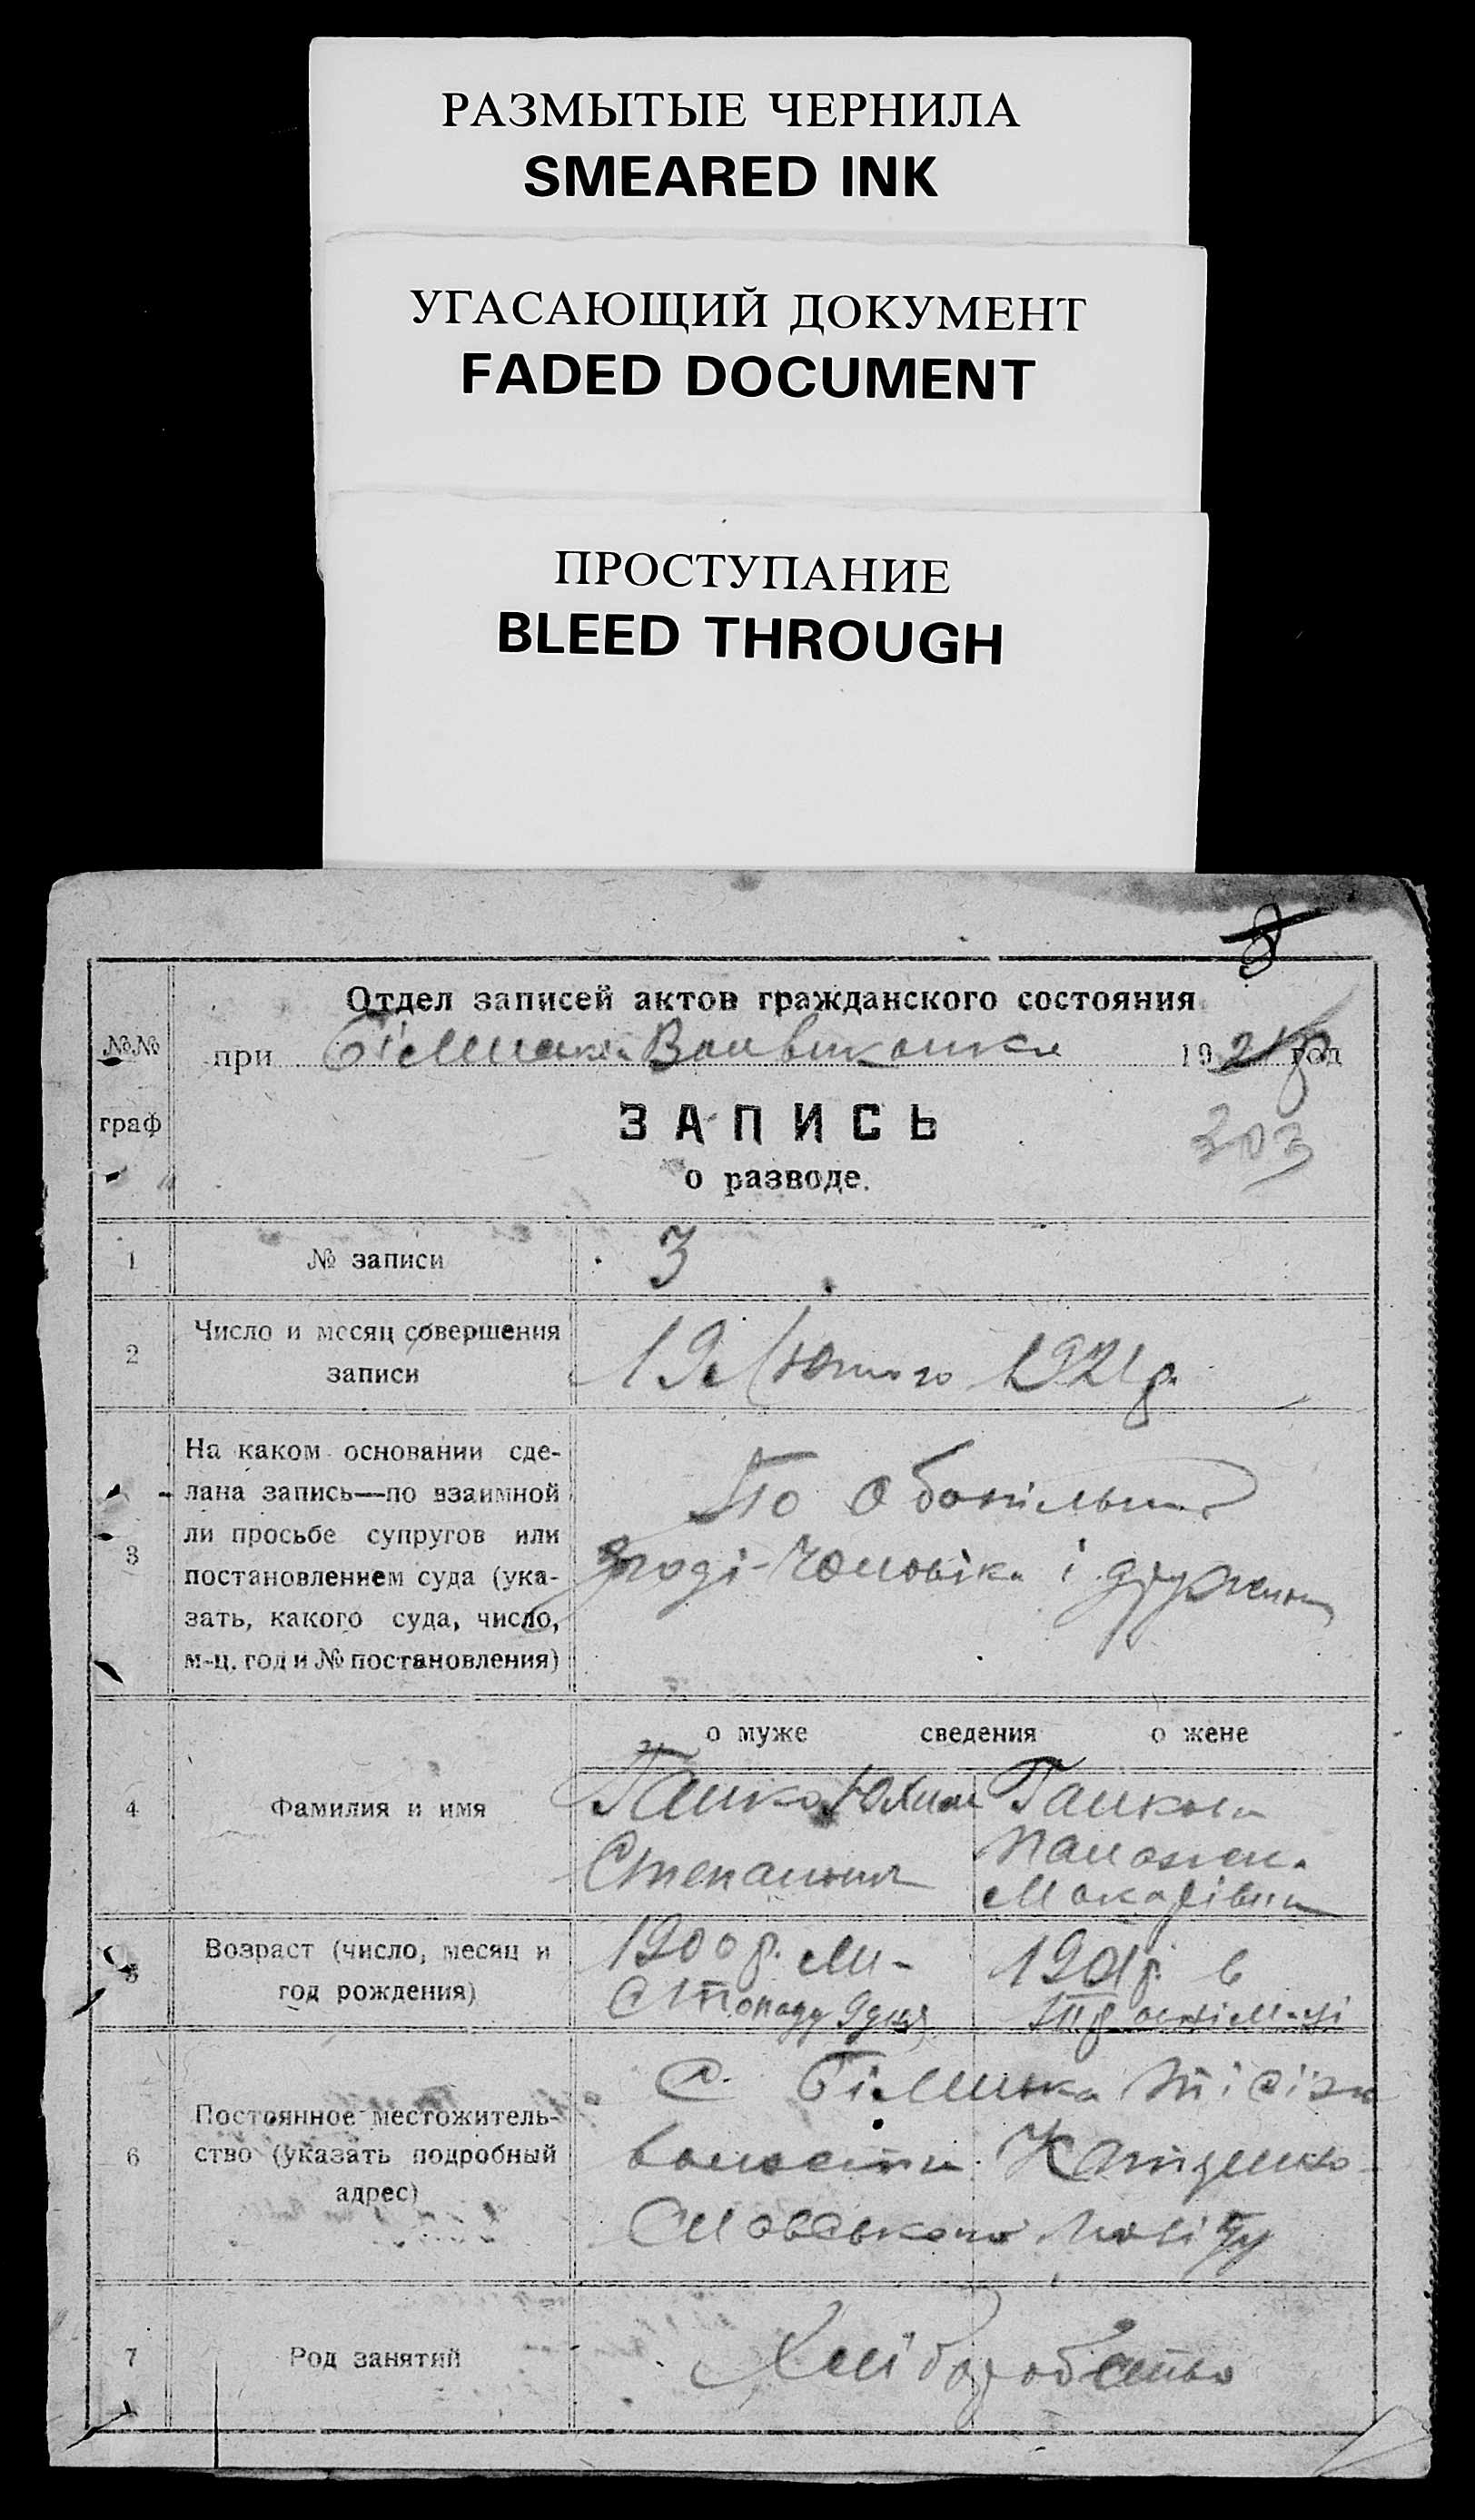 РАЗМЫТЫЕ ЧЕРНИЛА
SMEARED INK
УГАСАЮЩИЙ ДОКУМЕНТ
FADED DOCUMENT
ПРОСТУПАНИЕ
BLEED THROUGH
8
Отдел записей актов гражданского состояния
№№ при 1921 р год
граф ЗАПИСЬ
303
о разводе.
1 № записи 3
2 Число и месяц совершения
записи 19 Лютого 1921 р.
3 На каком основании сде-
лана запись—по взаимной
ли просьбе супругов или
постановлением суда (ука-
зать, какого суда, число,
м-ц, год и № постановления)
По обопільній
згоді чоловіка і дружини
о муже сведения о жене
4 Фамилия и имя
Галко Юхим
Степанович
Галкова
Палажка
Макарівна
5 Возраст (число, месяц и
год рождения)
1900 р. Ли-
стопаду 9 дня
1901 р. в
6 Постоянное местожитель-
ство (указать подробный
адрес)
с. Білики
волости
повіту
7 Род занятий Хліборобство